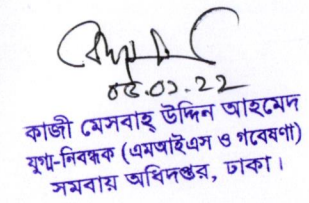 ০৫.০১.২২
কাজী মেসবাহ্ উদ্দিন আহমেদ
যুগ্ম-নিবন্ধক (এমআইএস ও গবেষণা)
সমবায় অধিদপ্তর, ঢাকা।